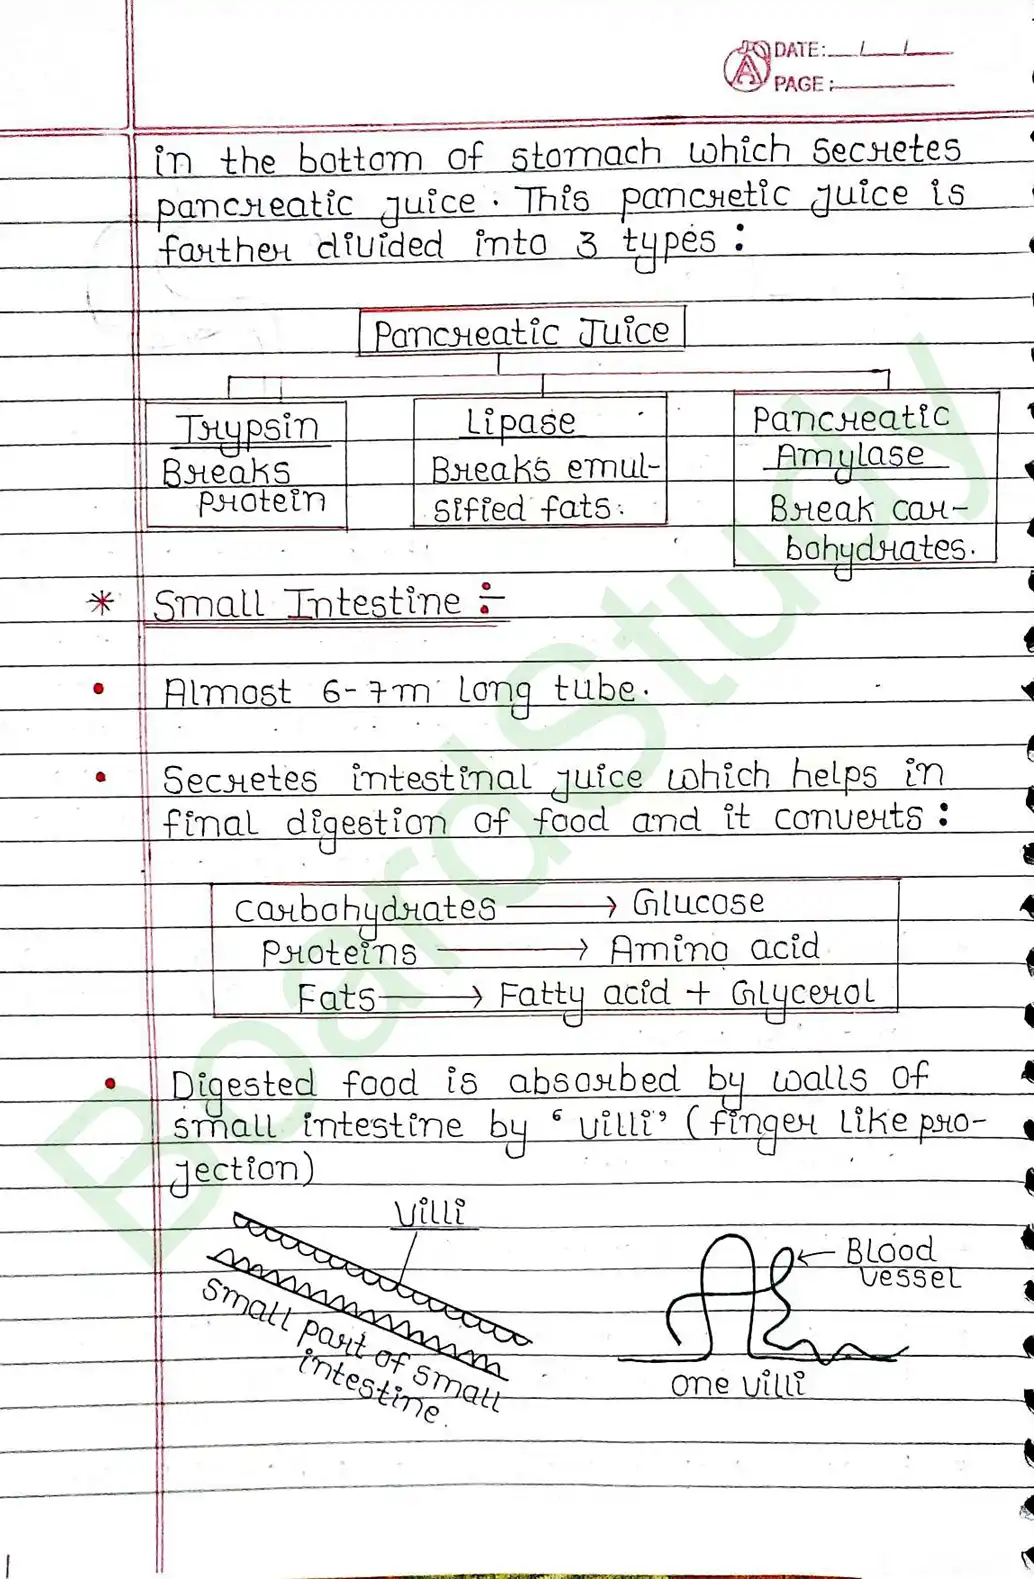 DATE: / /
PAGE:
in the bottom of stomach which secretes
pancreatic juice. This pancretic juice is
farther divided into 3 types:
Pancreatic Juice
Trypsin
Breaks
protein
Lipase
Breaks emul-
sified fats.
Pancreatic
Amylase
Break car-
bohydrates.
* Small Intestine :-
• Almost 6-7m long tube.
• Secretes intestinal juice which helps in
final digestion of food and it converts:
carbohydrates → Glucose
Proteins → Amino acid
Fats → Fatty acid + Glycerol
• Digested food is absorbed by walls of
small intestine by ‘villi’ (finger like pro-
jection)
Villi
Small part of small
intestine.
Blood
vessel
One villi
BoardStudy